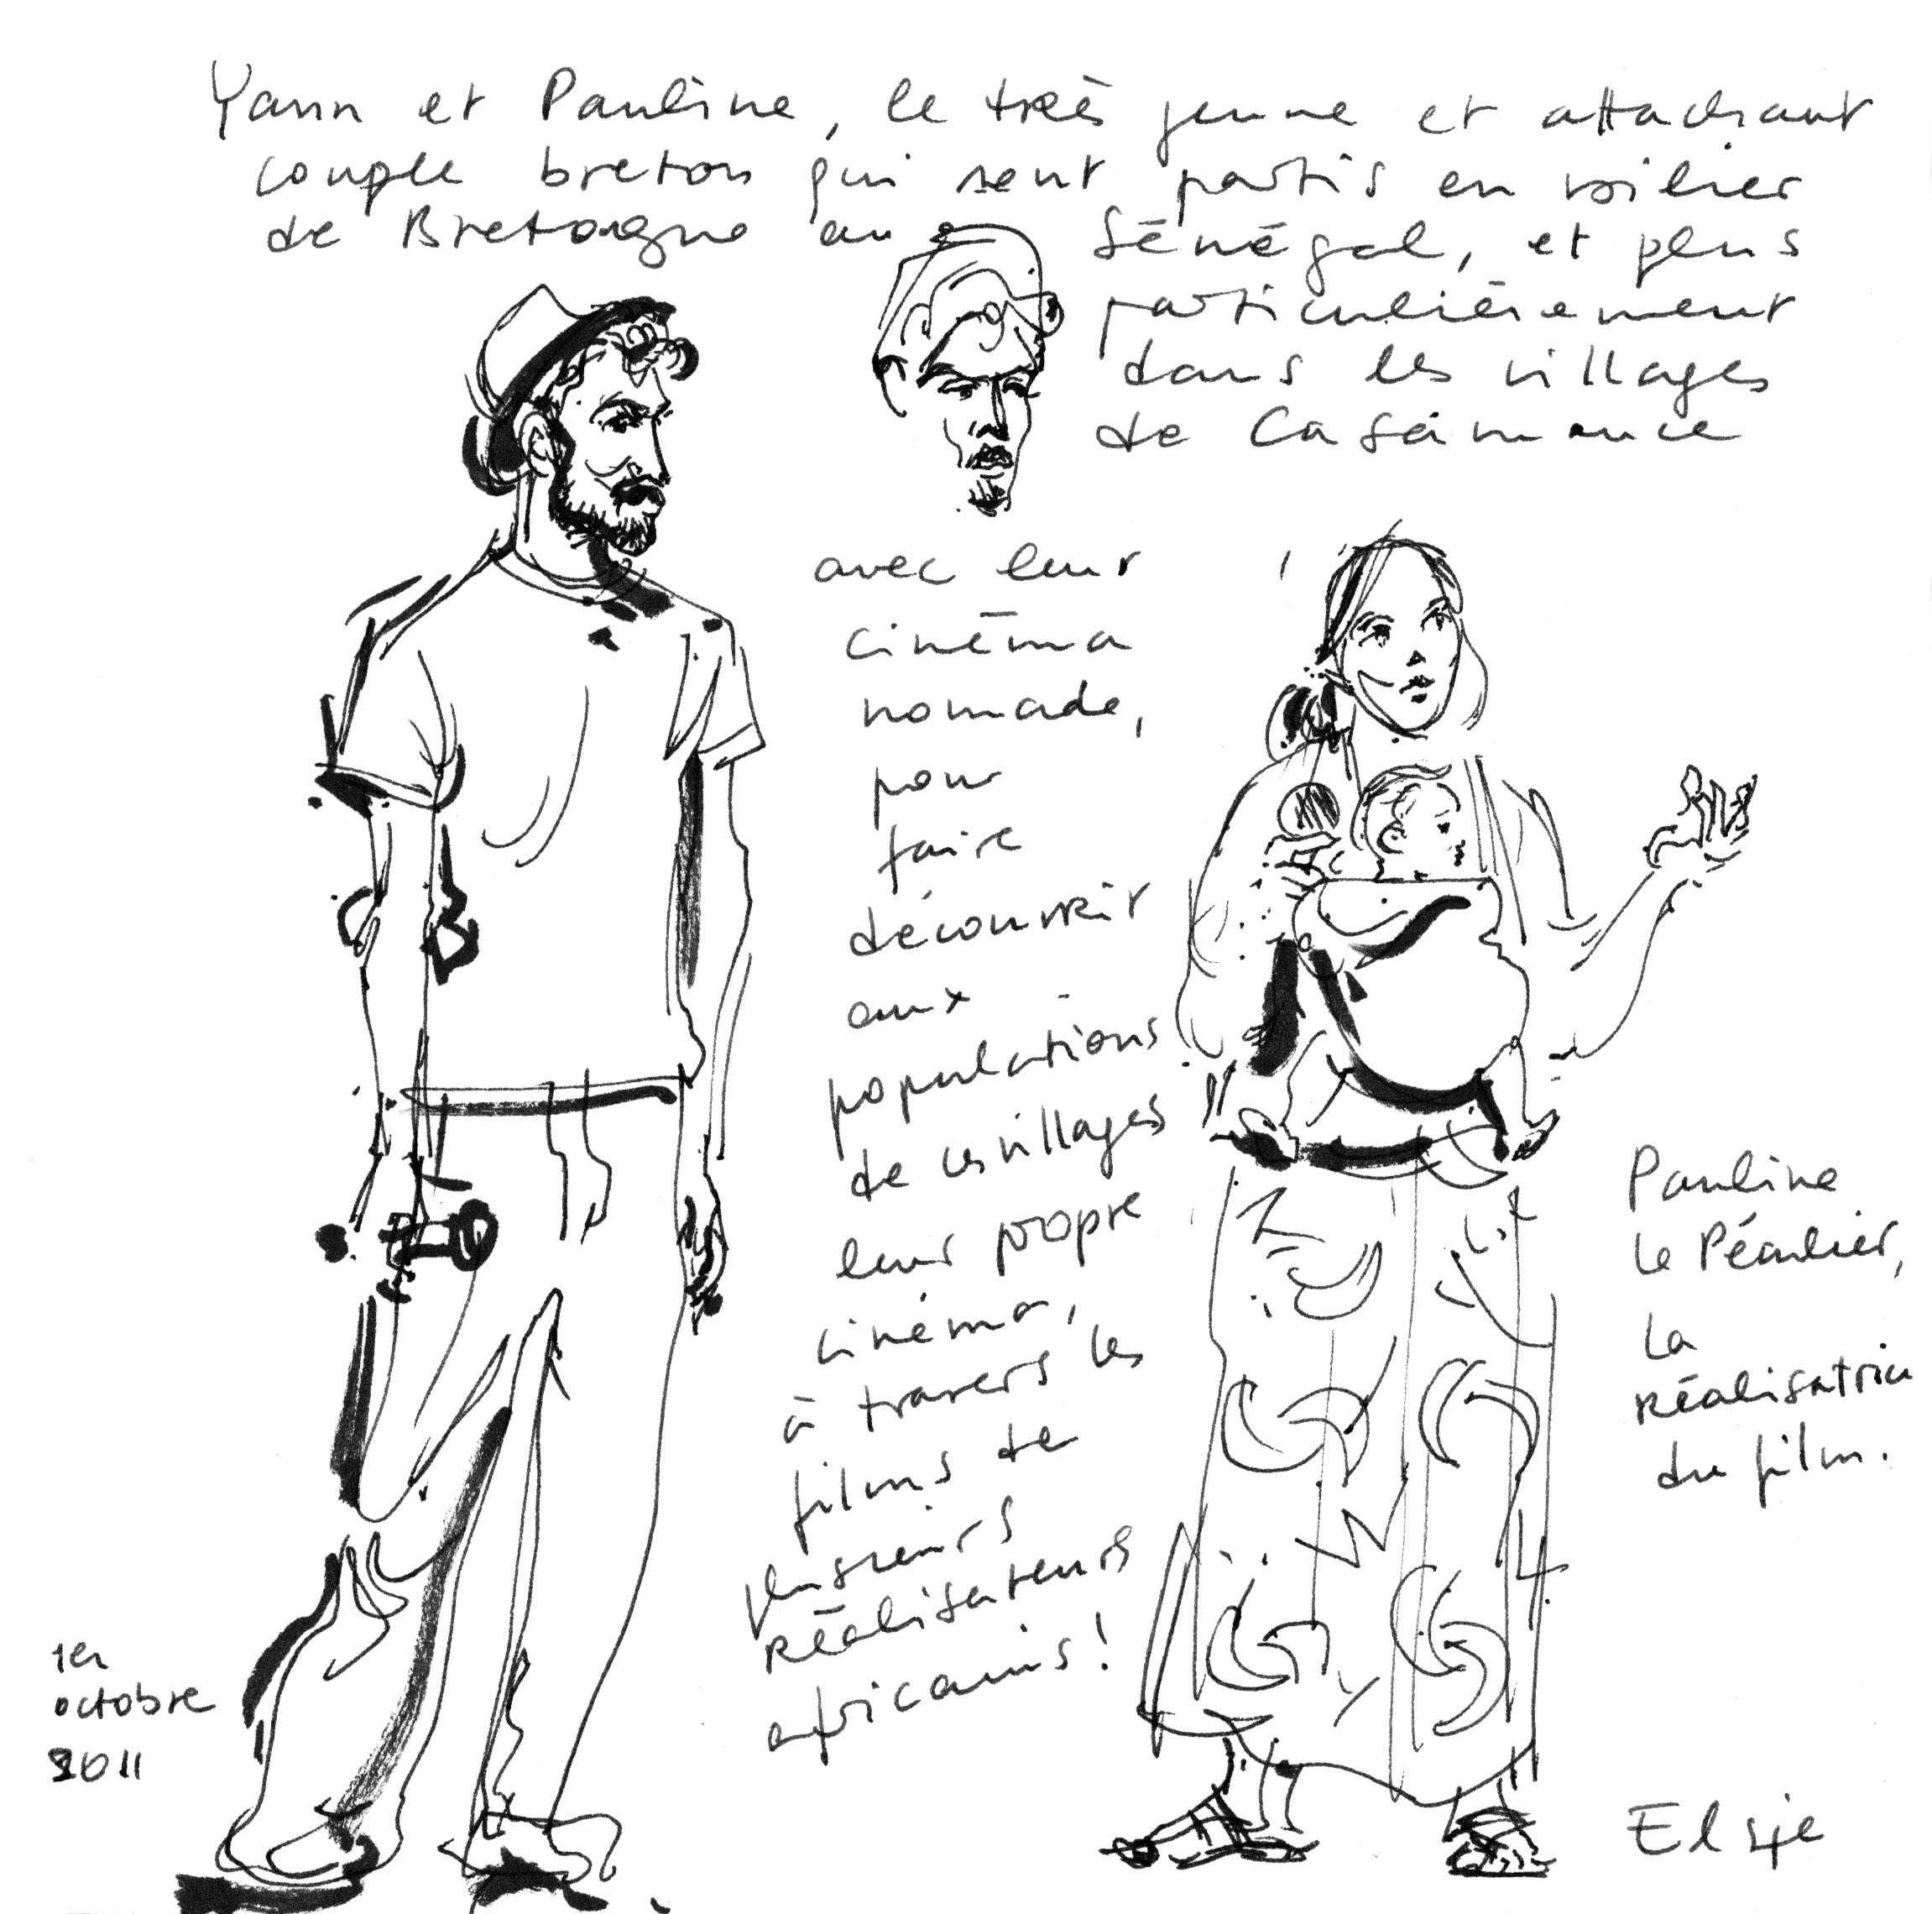 Yann et Pauline, le très jeune et attachant
couple breton qui sont partis en voilier
de Bretagne au Sénégal, et plus
particulièrement
dans les villages
de Casamance
avec leur
cinéma
nomade,
pour
faire
découvrir
aux
populations
de ces villages
leur propre
cinéma,
à travers les
films de
plusieurs
réalisateurs
africains !
Pauline
le Péculier,
la
réalisatrice
du film.
1er
octobre
2011
Elsje